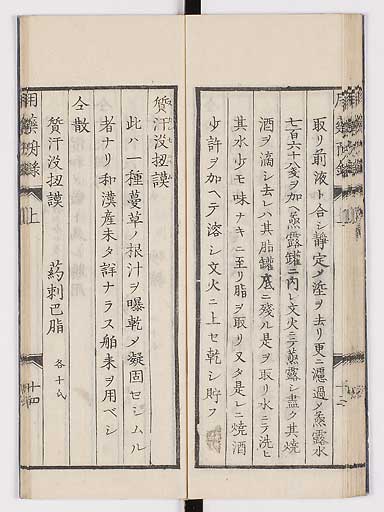 取リ前液ト合シ静定メ塗ヲ去リ更ニ漉過メ蒸露水
七百六十八戔ヲ加ヘ蒸露鑵ニ内レ文火ニテ蒸露シ盡ク其焼
酒ヲ滴シ去レハ其脂鑵底ニ残ル是ヲ取リ水ニテ洗ヒ
其水少モ味ナキニ至リ脂ヲ取リ又タ是レニ焼酒
少許ヲ加ヘテ溶シ文火ニ上セ乾シ貯フ
質汗没扭謨
此ハ一種蔓草ノ根汁ヲ曝乾メ凝固セシムル
者ナリ和漢産未タ詳ナラス舶来ヲ用ベシ
仝散
質汗没扭謨　葯刺巴脂　各十戔
上
十四